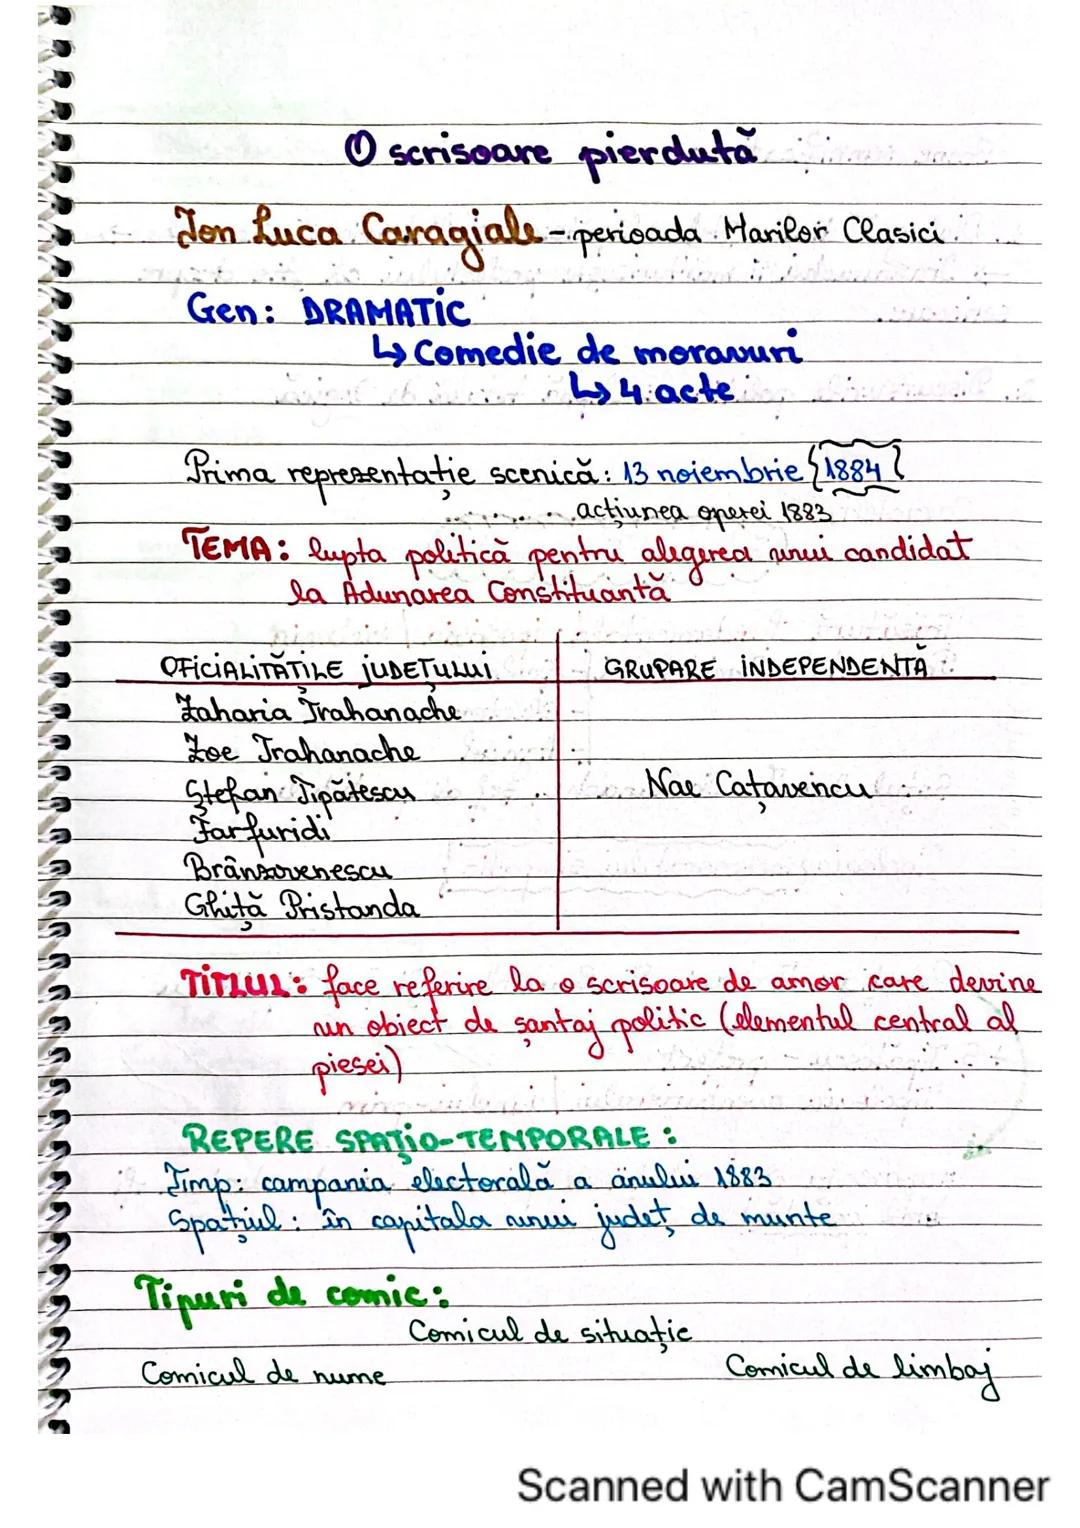 O scrisoare pierdută
Ion Luca Caragiale - perioada Marilor Clasici
Gen: DRAMATIC
↳ Comedie de moravuri
↳ 4 acte
Prima reprezentație scenică: 13 noiembrie {1884}
acțiunea operei 1883
TEMA: lupta politică pentru alegerea unui candidat
la Adunarea Constituantă
OFICIALITĂȚILE JUDEȚULUI GRUPARE INDEPENDENTĂ
Zaharia Trahanache
Zoe Trahanache
Ștefan Tipătescu Nae Cațavencu
Farfuridi
Brânzovenescu
Ghiță Pristanda
TITLUL: face referire la o scrisoare de amor care devine
un obiect de șantaj politic (elementul central al
piesei)
REPERE SPAȚIO-TEMPORALE:
Timp: campania electorală a anului 1883
Spațiul: în capitala unui județ de munte
Tipuri de comic:
Comicul de situație
Comicul de nume Comicul de limbaj
Scanned with CamScanner